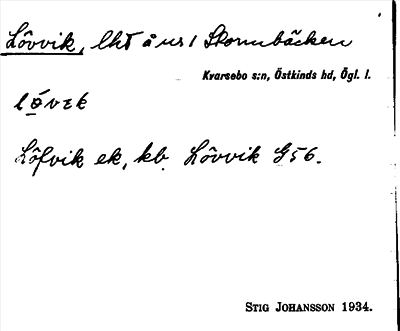 Lövvik, lht å nr 1 Skommbäcken
Kvarsebo s:n, Östkinds hd, Ögl. l.
lö́vɪk
Löfvik ek, kb. Lövvik G56.
STIG JOHANSSON 1934.